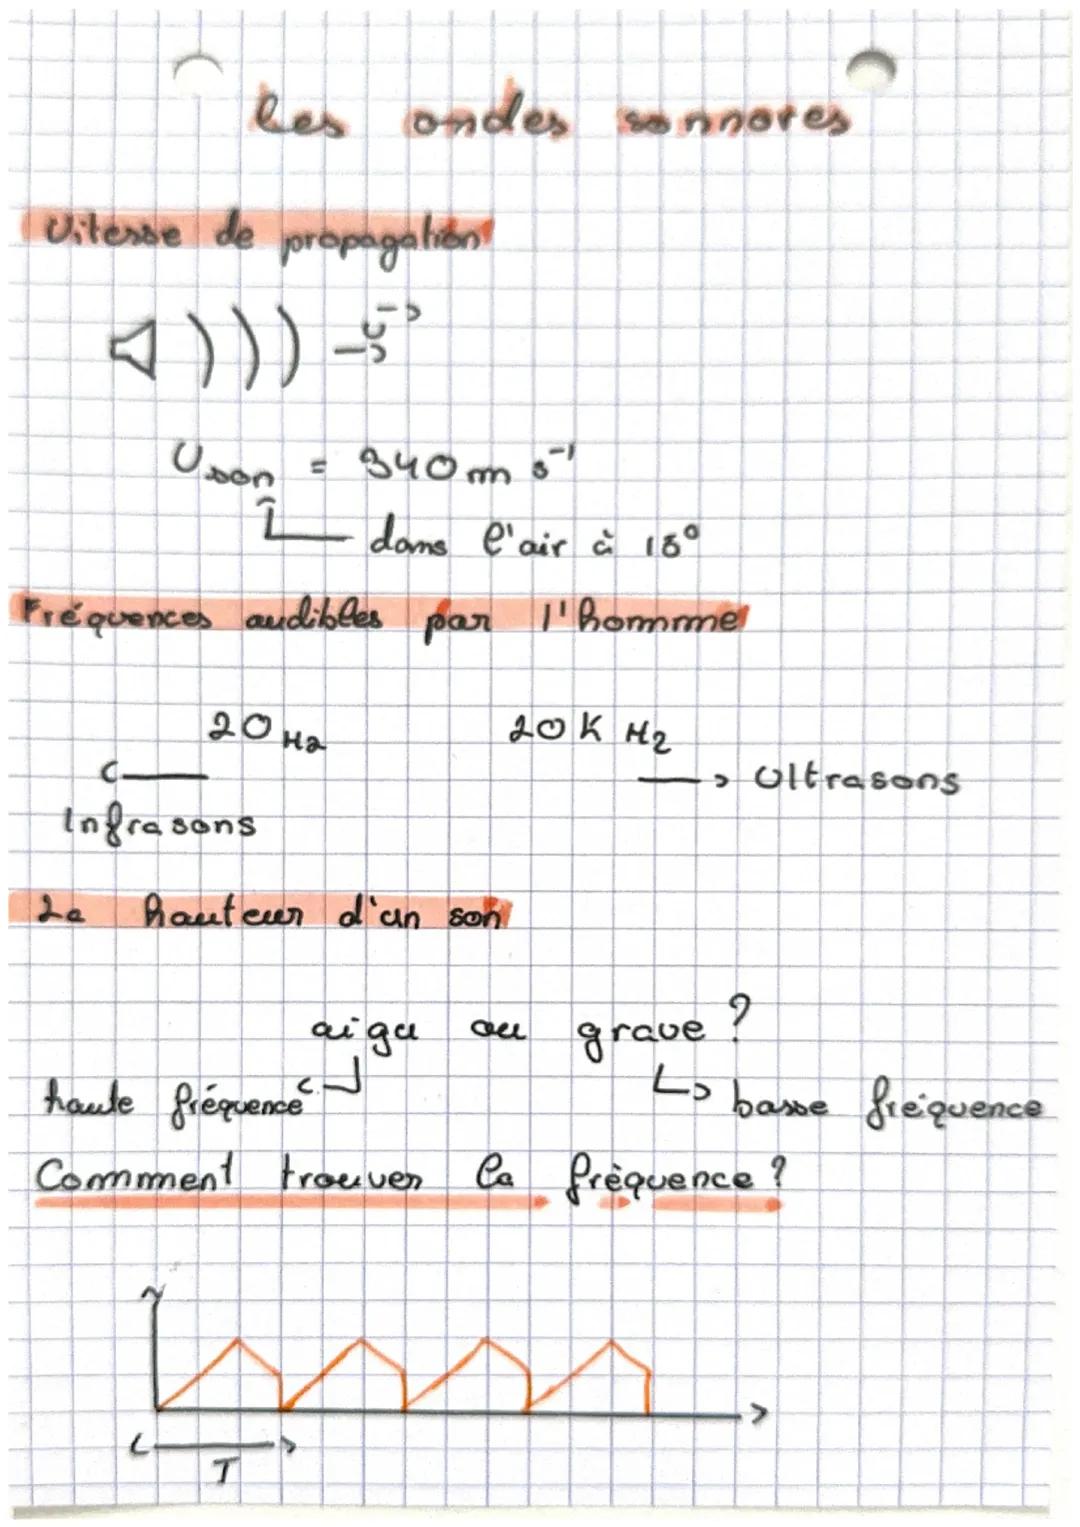 Les ondes sonnores
Vitesse de propagation
v
v son = 340 m s⁻¹
dans l'air à 15°
Fréquences audibles par l'homme
20 Hz 20 K Hz
Ultrasons
Infrasons
La hauteur d'un son
aigu ou grave ?
haute fréquence basse fréquence
Comment trouver la fréquence ?
T